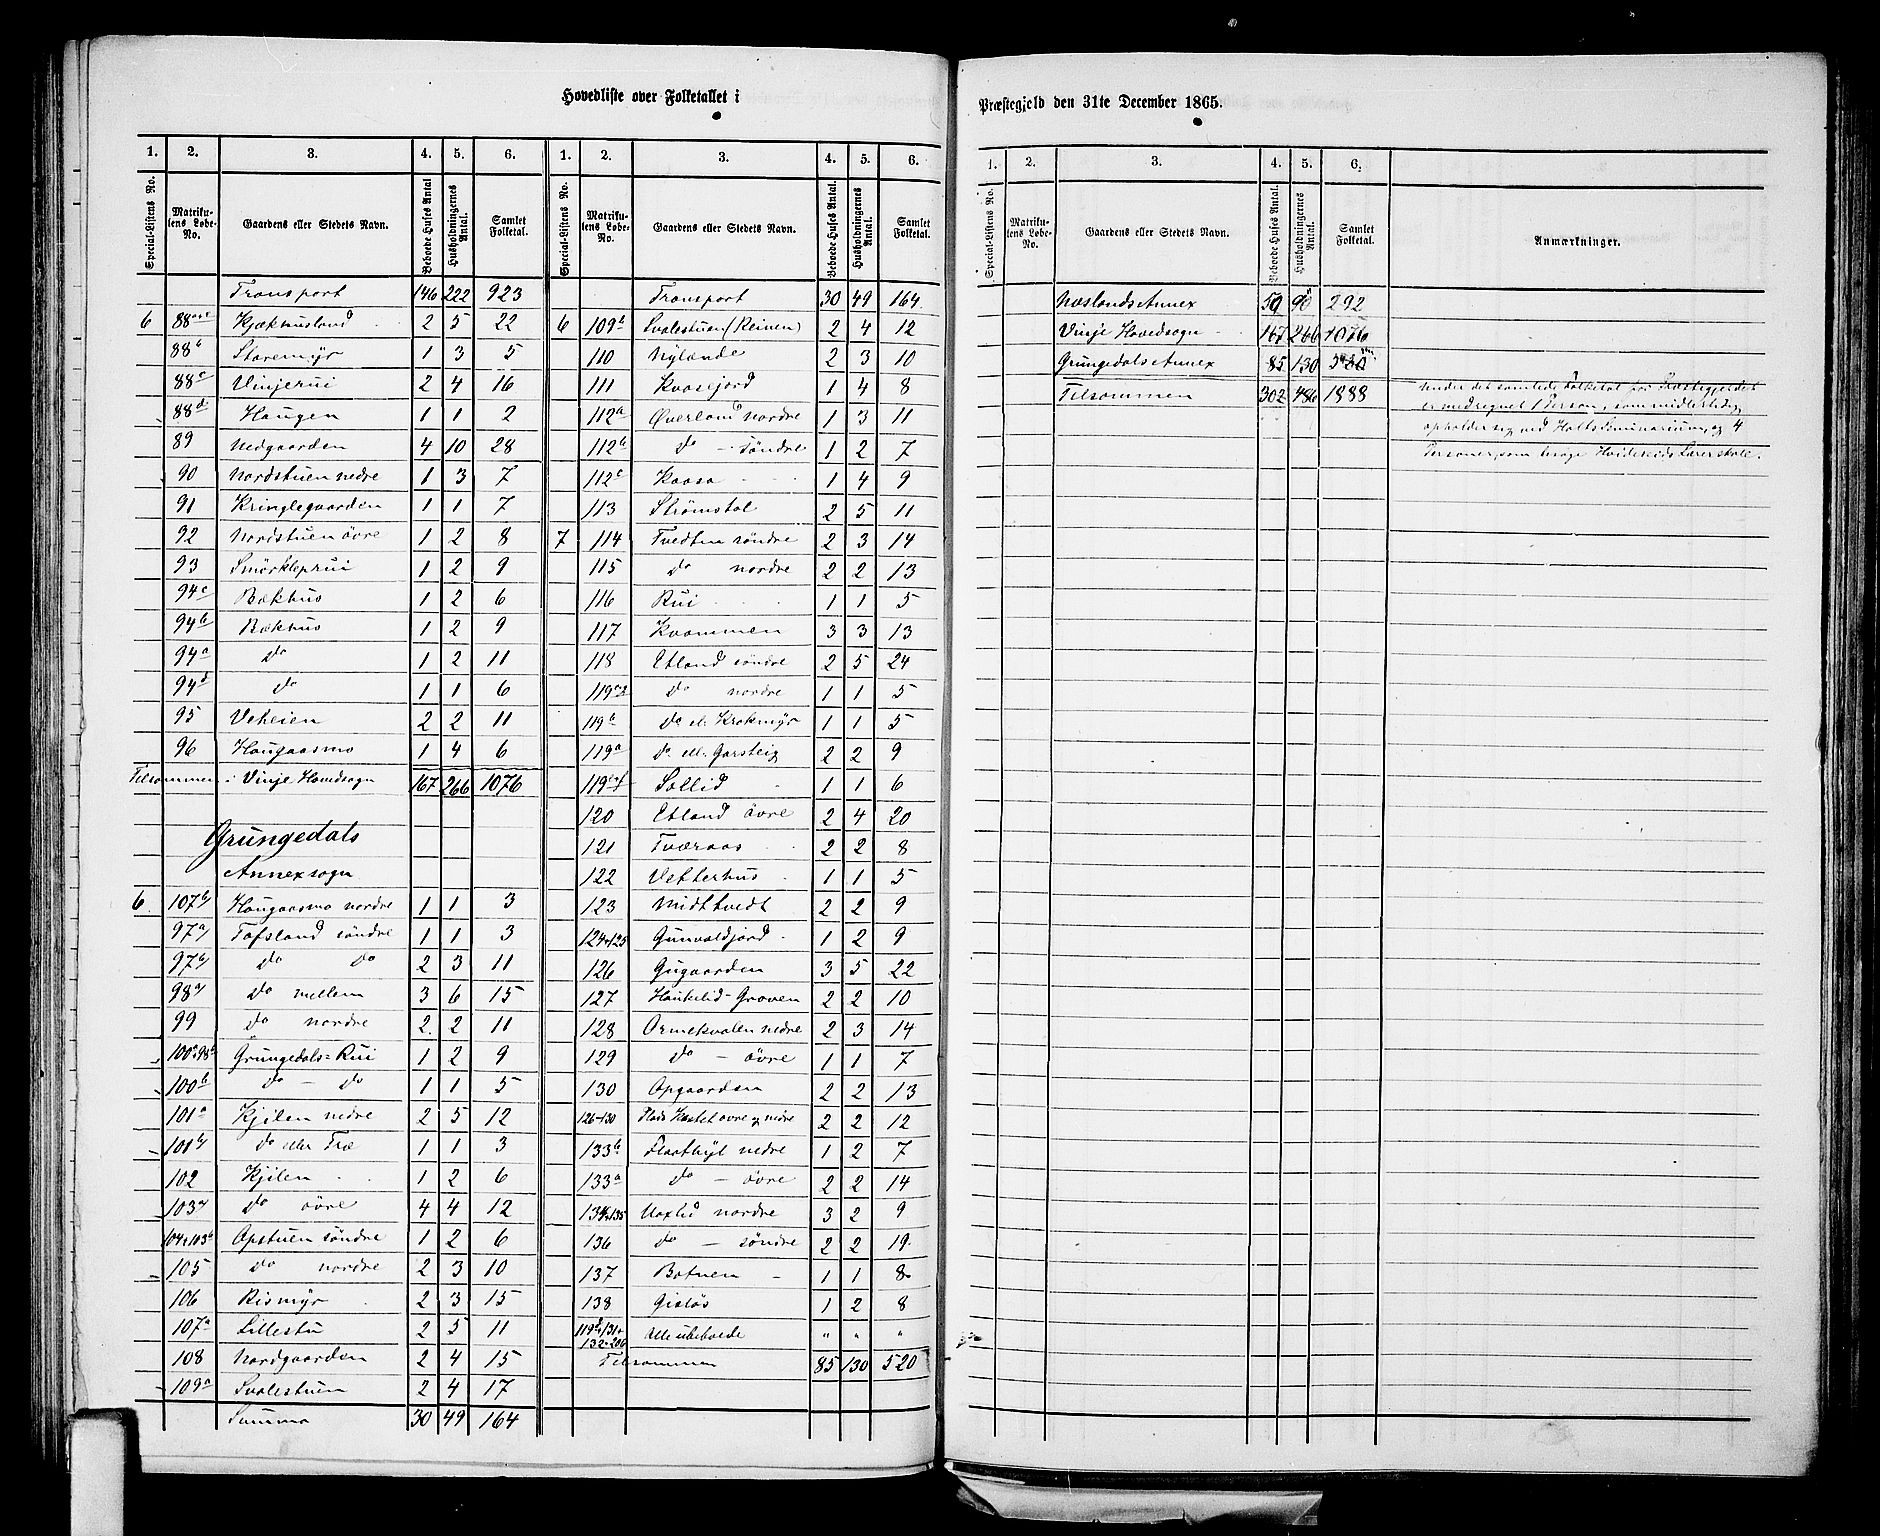 Hovedliste over Folketallet i
1. 2. 3. 4. 5. 6. 1. 2. 3. 4. 5. 6.
Special-Listens No. Matrikulens Løbe-No. Gaardens eller Stedets Navn. Beboede Huses Antal Husholdningernes Antal. Samlet Folketal. Special-Listens No. Matrikulens Løbe-No. Gaardens eller Stedets Navn. Beboede Huses Antal. Husholdningernes Antal. Samlet Folketal.
Transport 146 222 923
6 Kjækhusland 2 5 22
88b Staremyr 1 3 5
88c Vinjerui 2 4 16
88d Haugen 1 1 2
89 Nedgaarden 4 10 28
90 Nordstuen nedre 1 3 7
91 Kringlegaarden 1 1 7
92 Nordstuen övre 1 2 8
93 Smörkleprui 1 2 9
94c Bækhus 1 2 6
94b Bækhus 1 2 9
94a Do 1 2 11
94d Do 1 1 6
95 Veheien 2 2 11
96 Haugaasmo 1 4 6
Tilsammen i Vinje Hovedsogn 167 266 1076
Grungedals
Annexsogn
6 107b Haugaasmo nordre 1 1 3
97a Tofsland söndre 1 1 3
97b Do Do 2 3 11
98a Do mellem 3 6 15
99 Do nordre 2 2 11
100a+98b Grungedals=Rui 1 2 9
100b Do - Do 1 1 5
101a Kjilen nedre 2 5 12
101b Do eller Træ 1 1 3
102 Kjilen 1 2 6
103a Do övre 4 4 12
104+103b Opstuen söndre 1 2 6
105 Do nordre 2 3 10
106 Rismyr 2 3 15
107a Lillestu 2 5 11
108 Nordgaarden 2 4 15
109a Svalestuen 2 4 17
Summa 30 49 164
Transport 30 49 164
6 109b Svalestuen (Reinen) 2 4 12
110 Nylænde 2 3 10
111 Kvasejord 1 4 8
112a Øverland nordre 1 3 11
112b Do - söndre 1 2 7
112c Kaasa 1 4 9
113 Strömstøl 2 5 11
7 114 Tvedten söndre 2 3 14
115 Do nordre 2 2 13
116 Rui 1 1 5
117 Kvammen 3 3 13
118 Edland söndre 2 5 24
Do nordre 1 1 5
119b Do el. Krokmyr 1 1 5
119a Do ell. Garsteig 2 2 9
Sollid 1 1 6
120 Edland övre 2 4 20
121 Tværaas 2 2 8
122 Vetterhus 1 1 5
123 Midttvedt 2 2 9
124+125 Gunvaldjord 1 2 9
126 Gugaarden 3 5 22
127 Haukelid-Groven 2 2 10
128 Ormekvalen nedre 2 3 14
129 Do - övre 1 1 7
130 Opgaarden 2 2 13
126-130 Plads Hæstet øvre og nedre 2 2 12
133b Flaathyl nedre 1 2 7
133a Do - övre 2 2 14
134+135 Vaxlid nordre 3 2 9
136 Do - söndre 2 2 19
137 Botnen - 1 1 8
138 Gislös 1 2 8
119d+131+
132+206 Alle ubeboede " " "
Tilsammen 85 130 520
Præstegjeld den 31te December 1865.
1. 2. 3. 4. 5. 6.
Special-Listens No. Matrikulens Løbe-No. Gaardens eller Stedets Navn. Beboede Huses Antal. Husholdningernes Antal. Samlet Folketal. Anmærkninger.
Næslands Annex 50 90 292
Vinje Hovedsogn 167 266 1076
Grungedals Annex 85 130 520
Tilsammen 302 486 1888
Under det samlede Folketal for Præstegjeldet
er medregnet 1 Person, som midlertidig
opholder sig ved Holts Seminarium, og 4
Personer, som besøge Hvideseids Lærerskole.